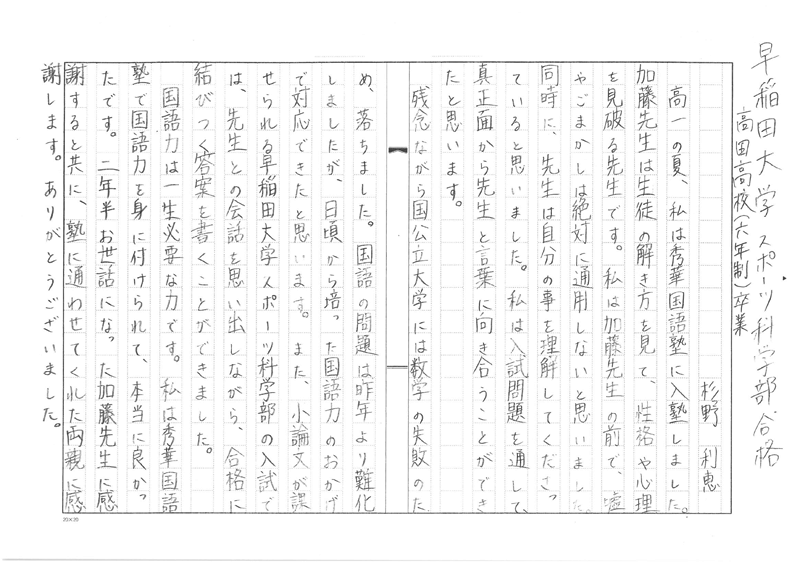 早稲田大学 スポーツ科学部 合格
高田高校(六年制)卒業
杉野 利恵
高一の夏、私は秀華国語塾に入塾しました。
加藤先生は生徒の解き方を見て、性格や心理
を見破る先生です。私は加藤先生の前で、嘘
やごまかしは絶対に通用しないと思いました。
同時に、先生は自分の事を理解してくださっ
ていると思いました。私は入試問題を通して、
真正面から先生と言葉に向き合うことができ
たと思います。
残念ながら国公立大学には数学の失敗のた
め、落ちました。国語の問題は昨年より難化
しましたが、日頃から培った国語力のおかげ
で対応できたと思います。また、小論文が課
せられる早稲田大学スポーツ科学部の入試で
は、先生との会話を思い出しながら、合格に
結びつく答案を書くことができました。
国語力は一生必要な力です。私は秀華国語
塾で国語力を身に付けられて、本当に良かっ
たです。二年半お世話になった加藤先生に感
謝すると共に、塾に通わせてくれた両親に感
謝します。ありがとうございました。
20×20